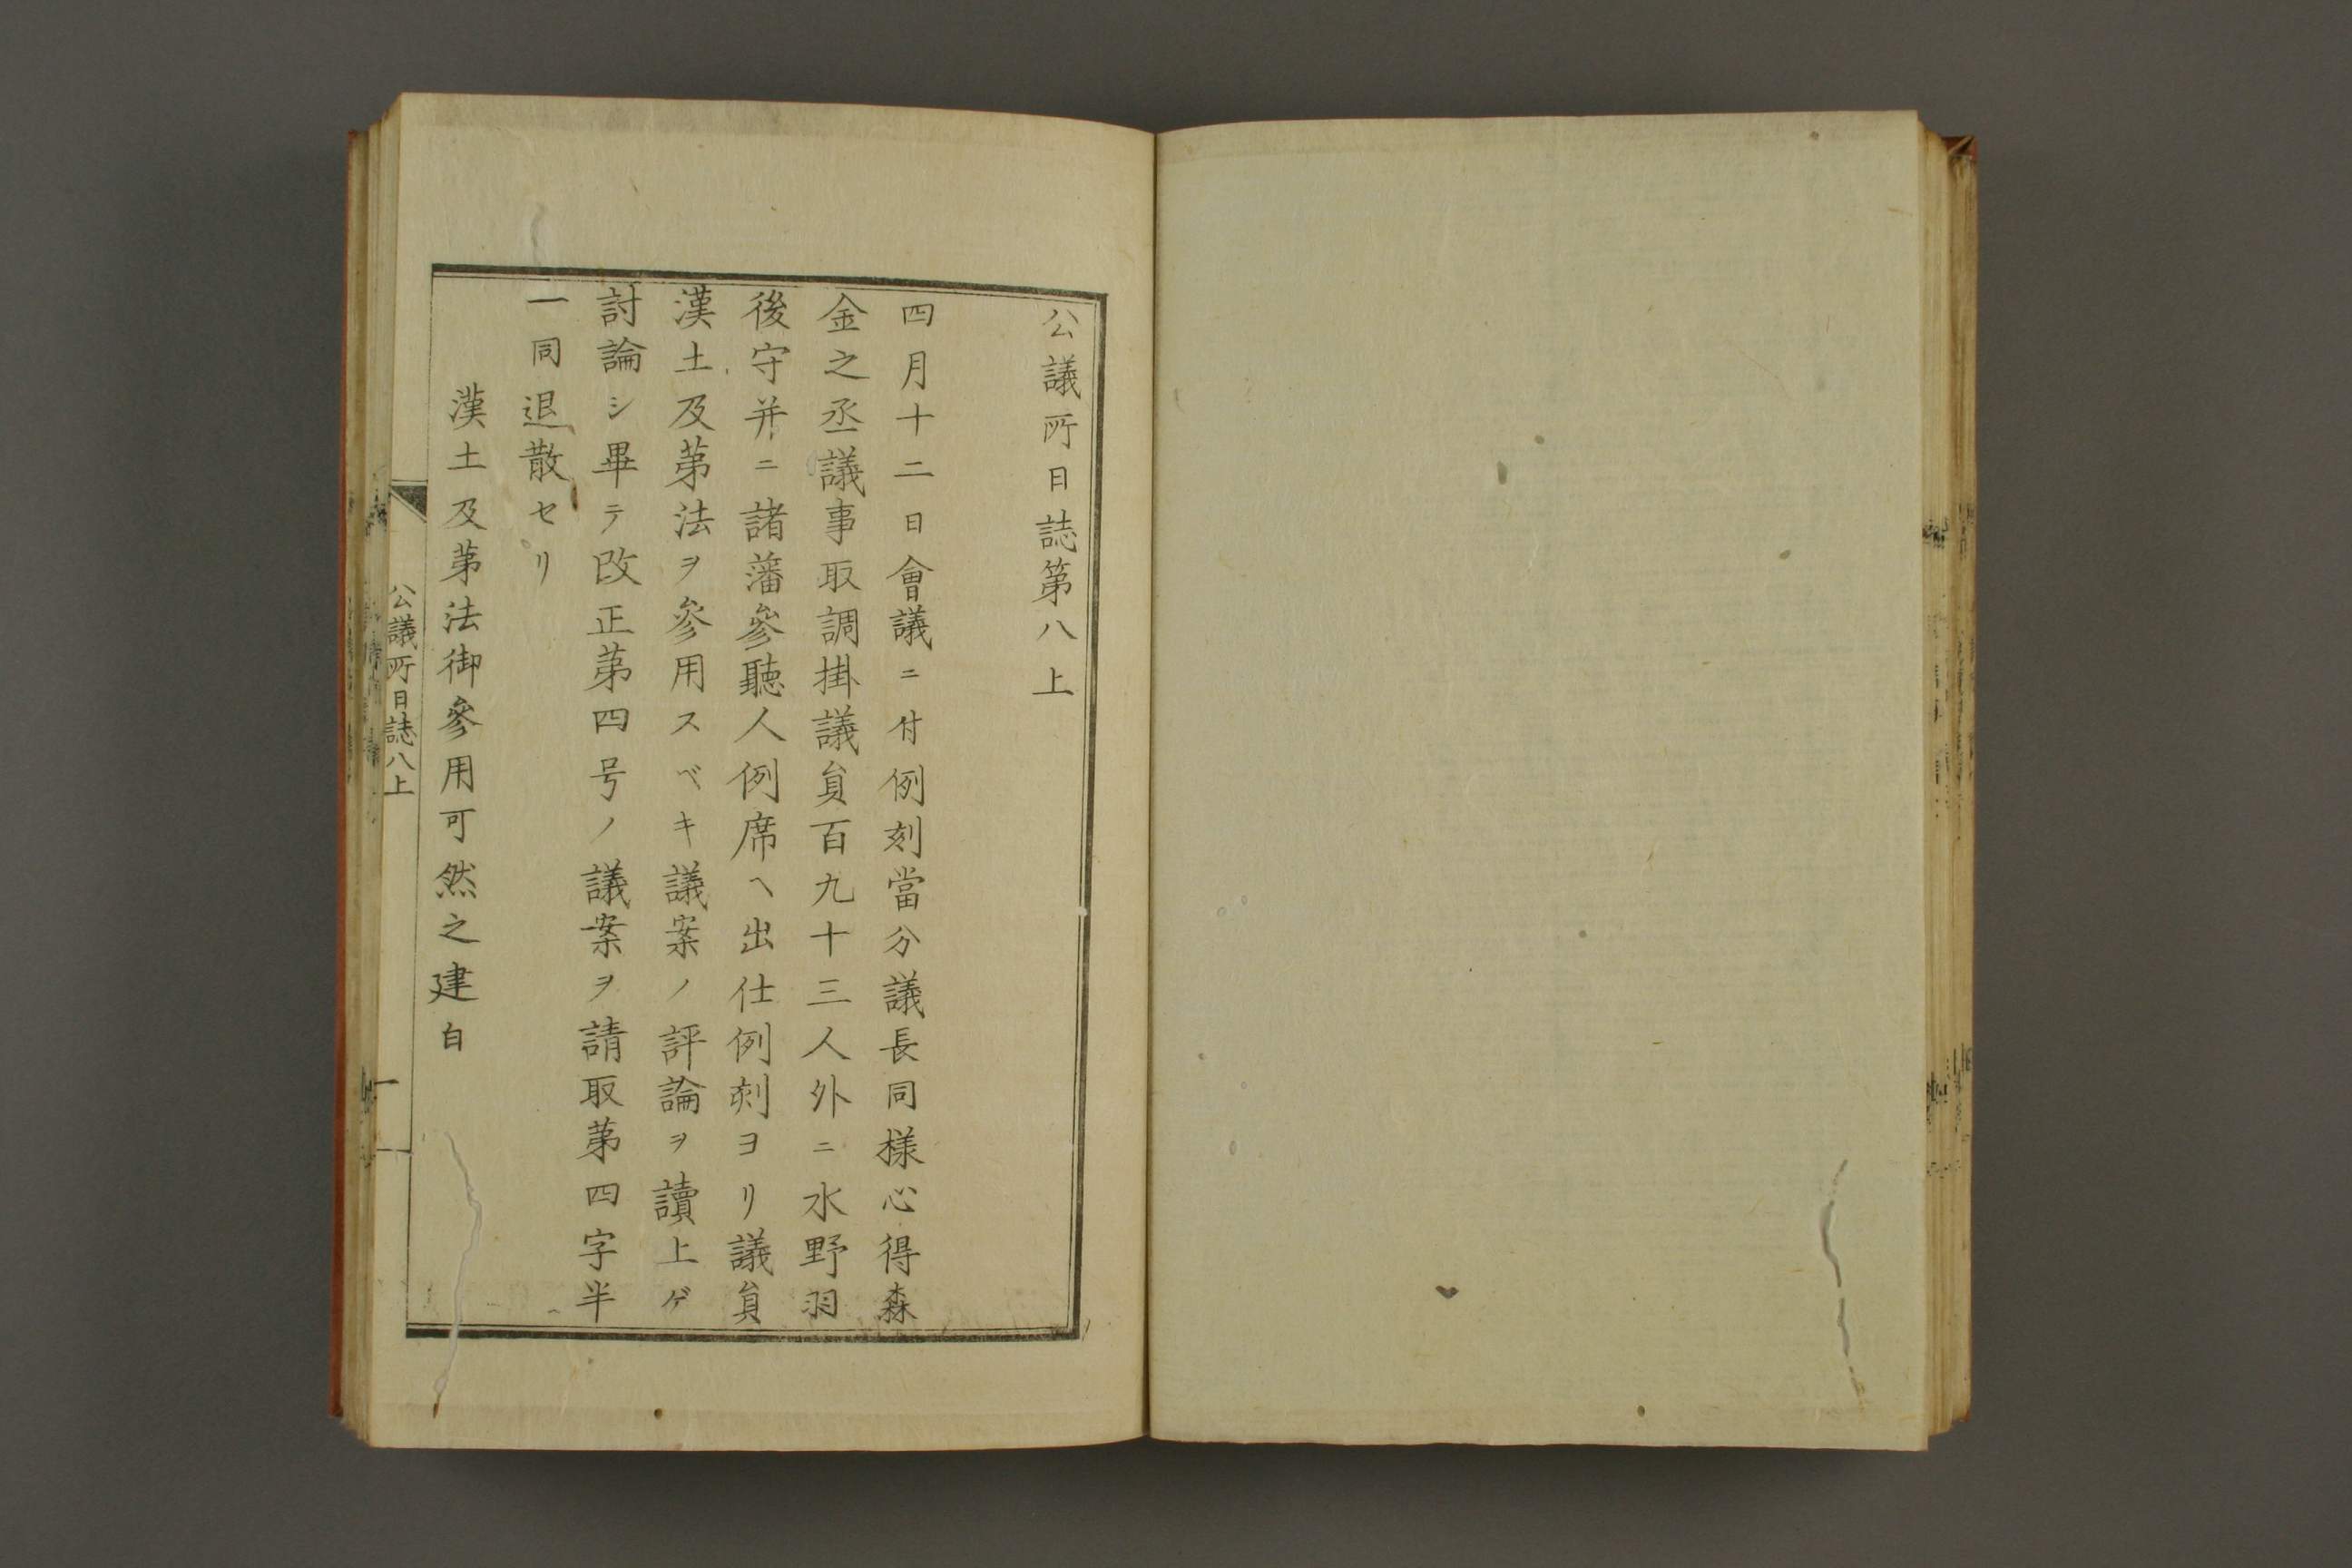 公議所日誌第八上
四月十二日會議ニ付例刻當分議長同樣心得森
金之丞議事取調掛議員百九十三人外ニ水野羽
後守并ニ諸藩參聽人例席ヘ出仕例刻ヨリ議員
漢土及第法ヲ參用スベキ議案ノ評論ヲ讀上ゲ
討論シ畢テ改正第四号ノ議案ヲ請取第四字半
一同退散セリ
漢土及第法御參用可然之建白
公議所日誌八上 一